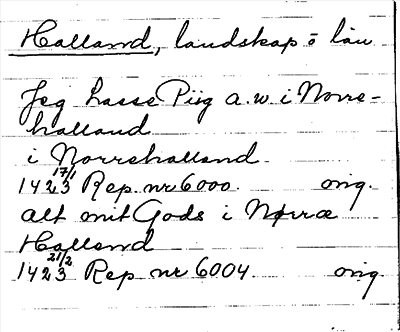 Halland, landskap o län
Jeg Lasse Piig a.w i Norre-
halland
i Norrehalland.
1423 17/1 Rep. nr 6000. orig.
alt mit Gods i Nørræ
Halland
1423 21/2 Rep nr 6004. orig.